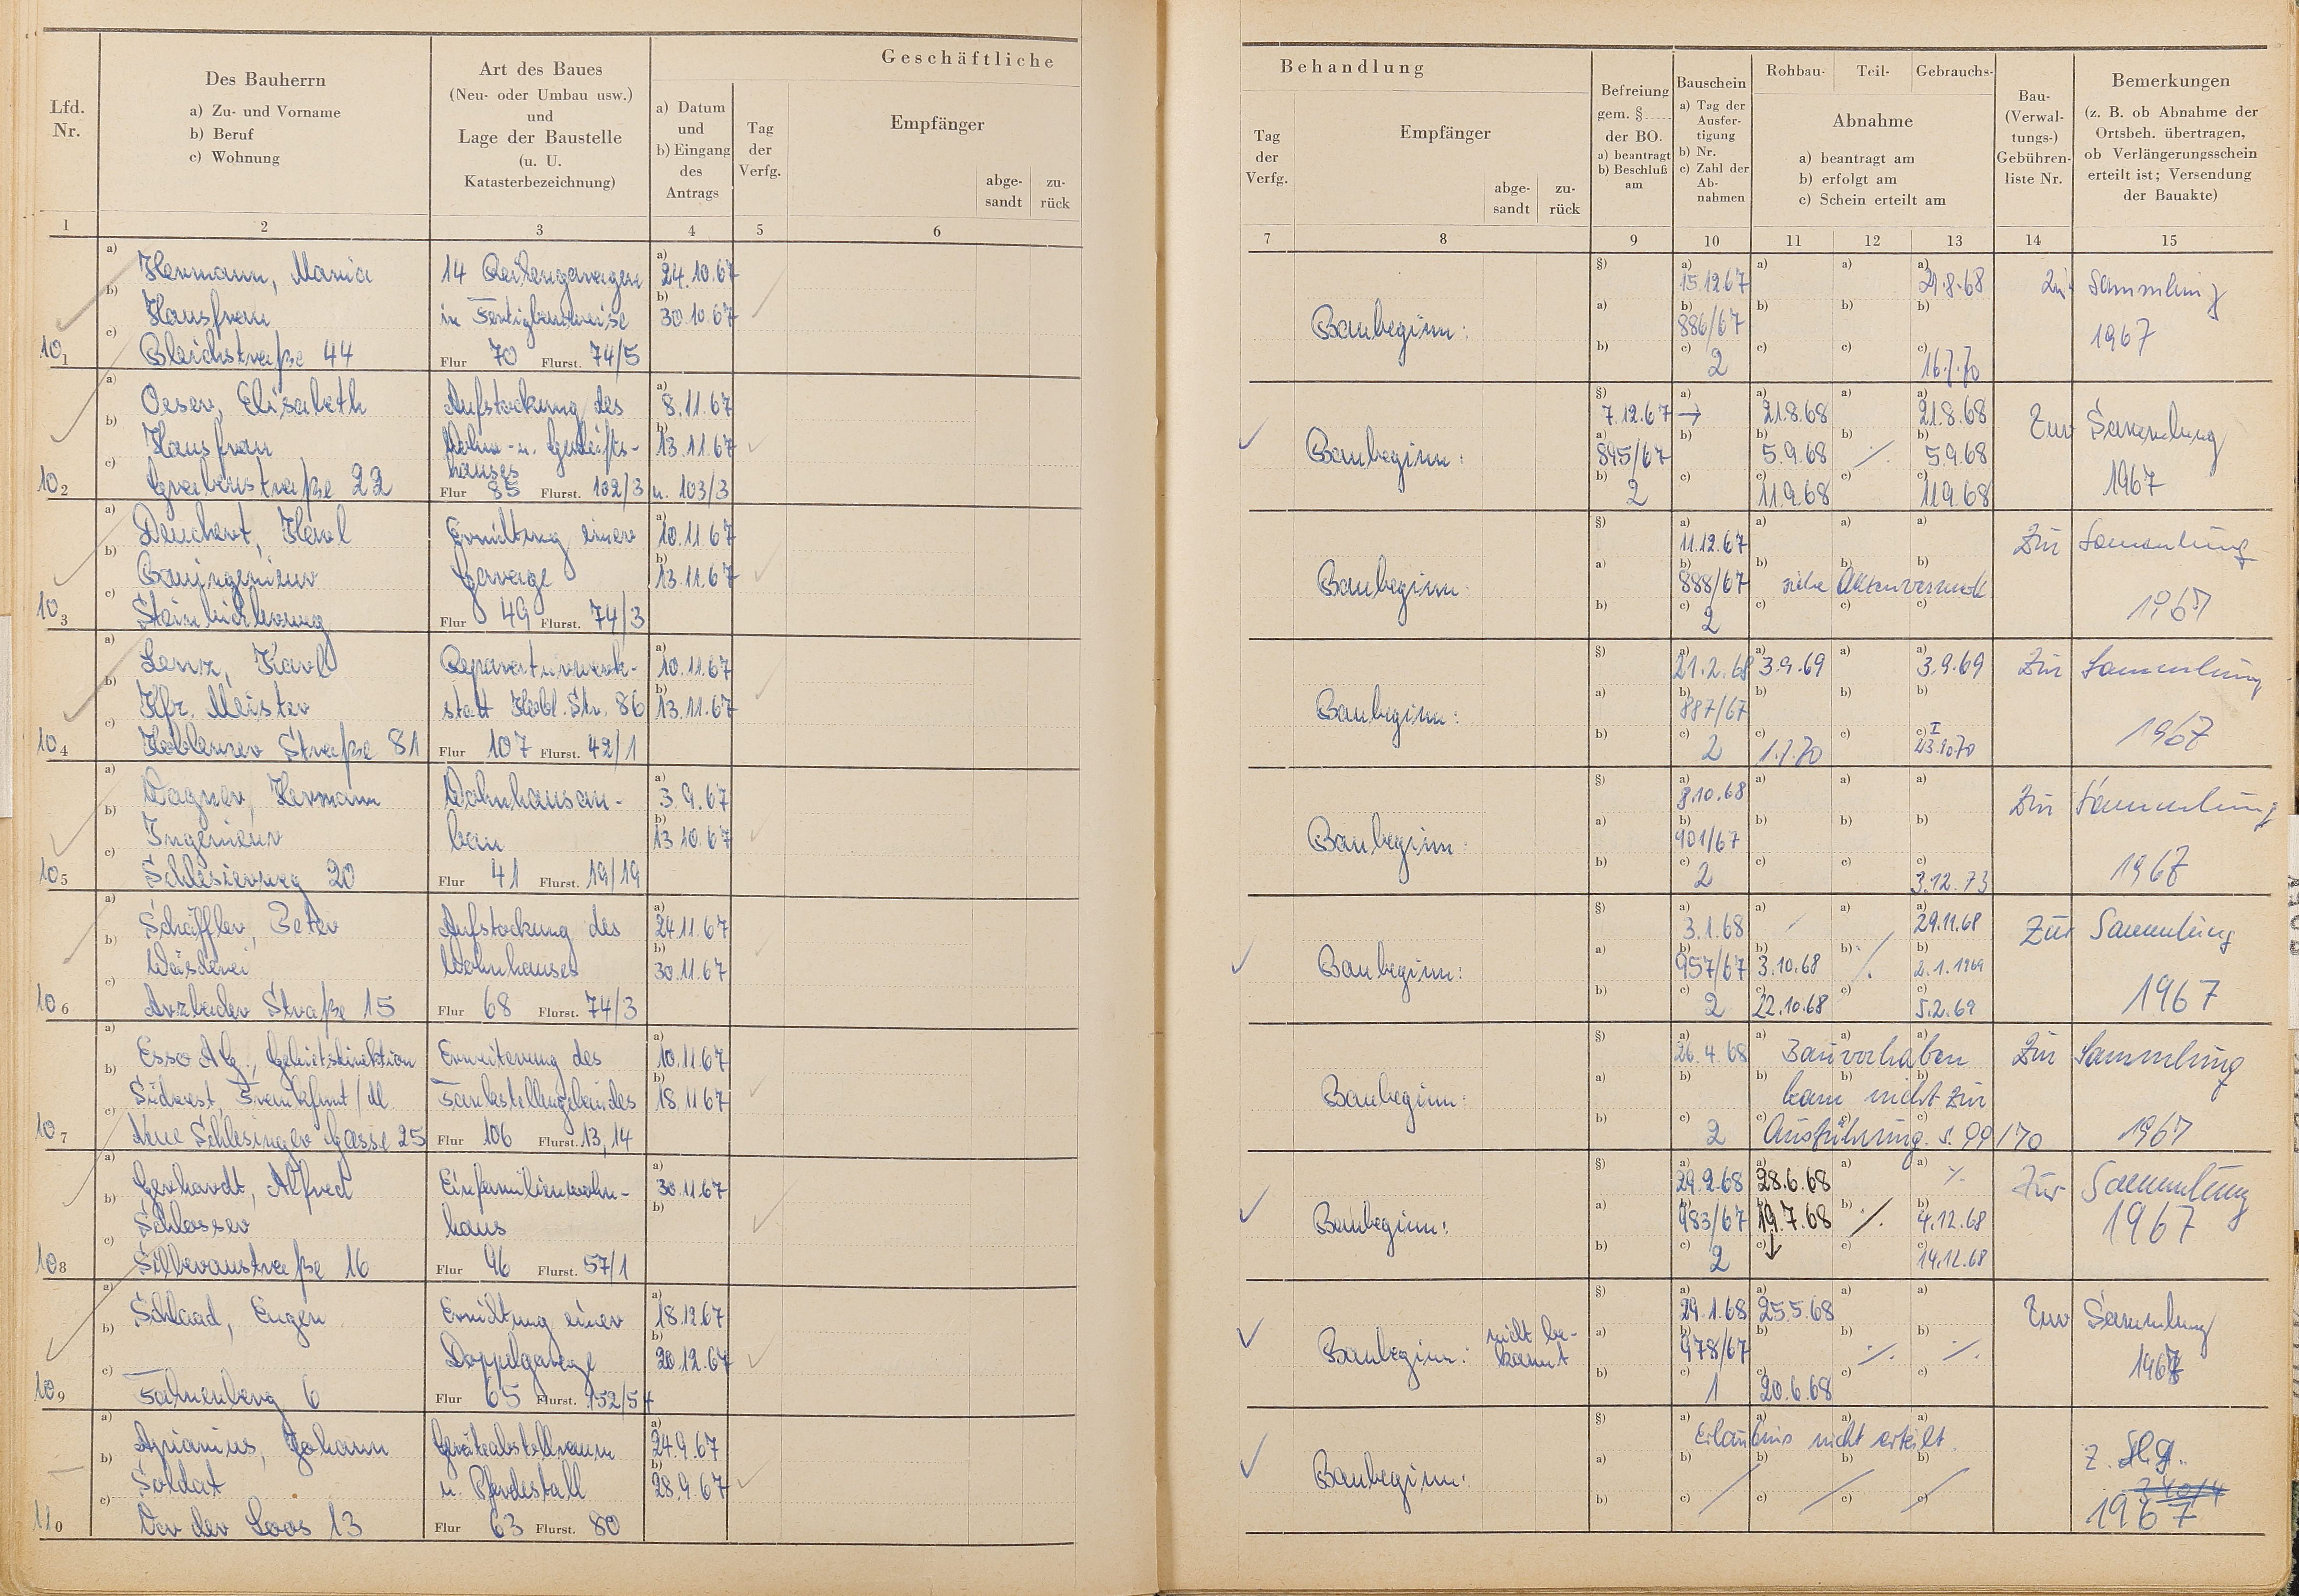 Geschäftliche
Lfd. Nr.
Des Bauherrn
a) Zu- und Vorname
b) Beruf
c) Wohnung
Art des Baues
(Neu- oder Umbau usw.)
und
Lage der Baustelle
(u. U.
Katasterbezeichnung)
a) Datum
und
b) Eingang
des
Antrags
Tag
der
Verfg.
Empfänger
abge-
sandt
zu-
rück
1 2 3 4 5 6
a) Hermann, Maria 14 Reihengaragen a) 24.10.67
b) Hausfrau in Fertigbauweise b) 30.10.67
101 c) Bleichstraße 44 Flur 70 Flurst. 74/5
a) Oeser, Elisabeth Aufstockung des a) 8.11.67
b) Hausfrau Wohn- u. Geschäfts- b) 13.11.67
hauses
102 c) Grabenstraße 22 Flur 85 Flurst. 102/3 u. 103/3
a) Deuchert, Karl Errichtung einer a) 10.11.67
b) Bauingenieur Garage b) 13.11.67
103 c) Flur 49 Flurst. 74/3
a) Lenz, Karl Reparaturwerk- a) 10.11.67
b) Kfz. Meister statt Kobl. Str. 86 b) 13.11.67
104 c) Koblenzer Straße 81 Flur 107 Flurst. 42/1
a) Wagner, Hermann Wohnhausan- a) 3.9.67
b) Ingenieur bau b) 13.10.67
105 c) Schlesierweg 20 Flur 41 Flurst. 19/19
a) Schäffler, Peter Aufstockung des a) 24.11.67
b) Wäscherei Wohnhauses b) 30.11.67
106 c) Arzbacher Straße 15 Flur 68 Flurst. 74/3
a) Esso AG., Gebietsdirektion Erweiterung des a) 10.11.67
b) Südwest, Frankfurt/M. Tankstellengebäudes b) 18.11.67
107 c) Neue Schlesinger Gasse 25 Flur 106 Flurst. 13, 14
a) Gerhardt, Alfred Einfamilienwohn- a) 30.11.67
b) Schlosser haus b)
108 c) Silberaustraße 16 Flur 96 Flurst. 57/1
a) Schaad, Eugen Errichtung einer a) 18.12.67
b) Doppelgarage b) 20.12.67
109 c) Fahnenberg 6 Flur 65 Flurst. 152/54
a) Johann Geräteabstellraum a) 24.9.67
b) Soldat u. Pferdestall b) 28.9.67
110 c) Vor der Loos 13 Flur 63 Flurst. 80
Behandlung
Tag
der
Verfg.
Empfänger
abge-
sandt
zu-
rück
Befreiung
gem. §
der BO.
a) beantragt
b) Beschluß
am
Bauschein
a) Tag der
Ausfer-
tigung
b) Nr.
c) Zahl der
Ab-
nahmen
Rohbau- Teil- Gebrauchs-
Abnahme
a) beantragt am
b) erfolgt am
c) Schein erteilt am
Bau-
(Verwal-
tungs-)
Gebühren-
liste Nr.
Bemerkungen
(z. B. ob Abnahme der
Ortsbeh. übertragen,
ob Verlängerungsschein
erteilt ist; Versendung
der Bauakte)
7 8 9 10 11 12 13 14 15
§) a) 15.12.67 a) a) a) 21.8.68 Zur Sammlung
Baubeginn: a) b) 886/67 b) b) b) 1967
b) c) 2 c) c) c) 16.7.70
§) 7.12.67 → a) a) 21.8.68 a) a) 21.8.68 Zur Sammlung
Baubeginn: a) 895/67 b) b) 5.9.68 b) ./. b) 5.9.68
b) 2 c) c) 11.9.68 c) c) 11.9.68 1967
§) a) 11.12.67 a) a) a) Zur Sammlung
Baubeginn: a) b) 888/67 b) siehe Aktenvermerk
b) c) 2 c) c) c) 1967
§) a) 21.2.68 a) 3.9.69 a) a) 3.9.69 Zur Sammlung
Baubeginn: a) b) 887/67 b) b) b)
b) c) 2 c) 1.7.70 c) c) 1967
§) a) 8.10.68 a) a) a) Zur Sammlung
Baubeginn: a) b) 901/67 b) b) b)
b) c) 2 c) c) c) 3.12.73 1967
§) a) 3.1.68 a) a) a) 29.11.68 Zur Sammlung
Baubeginn: a) b) 957/67 b) 3.10.68 b) ./. b) 2.1.1969
b) c) 2 c) 22.10.68 c) c) 5.2.69 1967
§) a) 26.4.68 a) Bauvorhaben Zur Sammlung
Baubeginn: a) b) b) kam nicht zur
b) c) 2 c) Ausführung. s. 99/70 1967
§) a) 29.2.68 a) 28.6.68 a) a) ./. Zur Sammlung
Baubeginn: a) b) 983/67 b) 19.7.68 b) ./. b) 4.12.68 1967
b) c) 2 c) ↓ c) c) 14.12.68
§) a) 29.1.68 a) 25.5.68 a) a) Zur Sammlung
Baubeginn: nicht be- a) b) 978/67 b) b) ./. b) ./. 1967
kannt b) c) 1 c) 20.6.68 c) c)
§) a) Erlaubnis nicht erteilt. z. Slg.
Baubeginn: a) b) b) b) b)
b) c) c) c) c) 1967